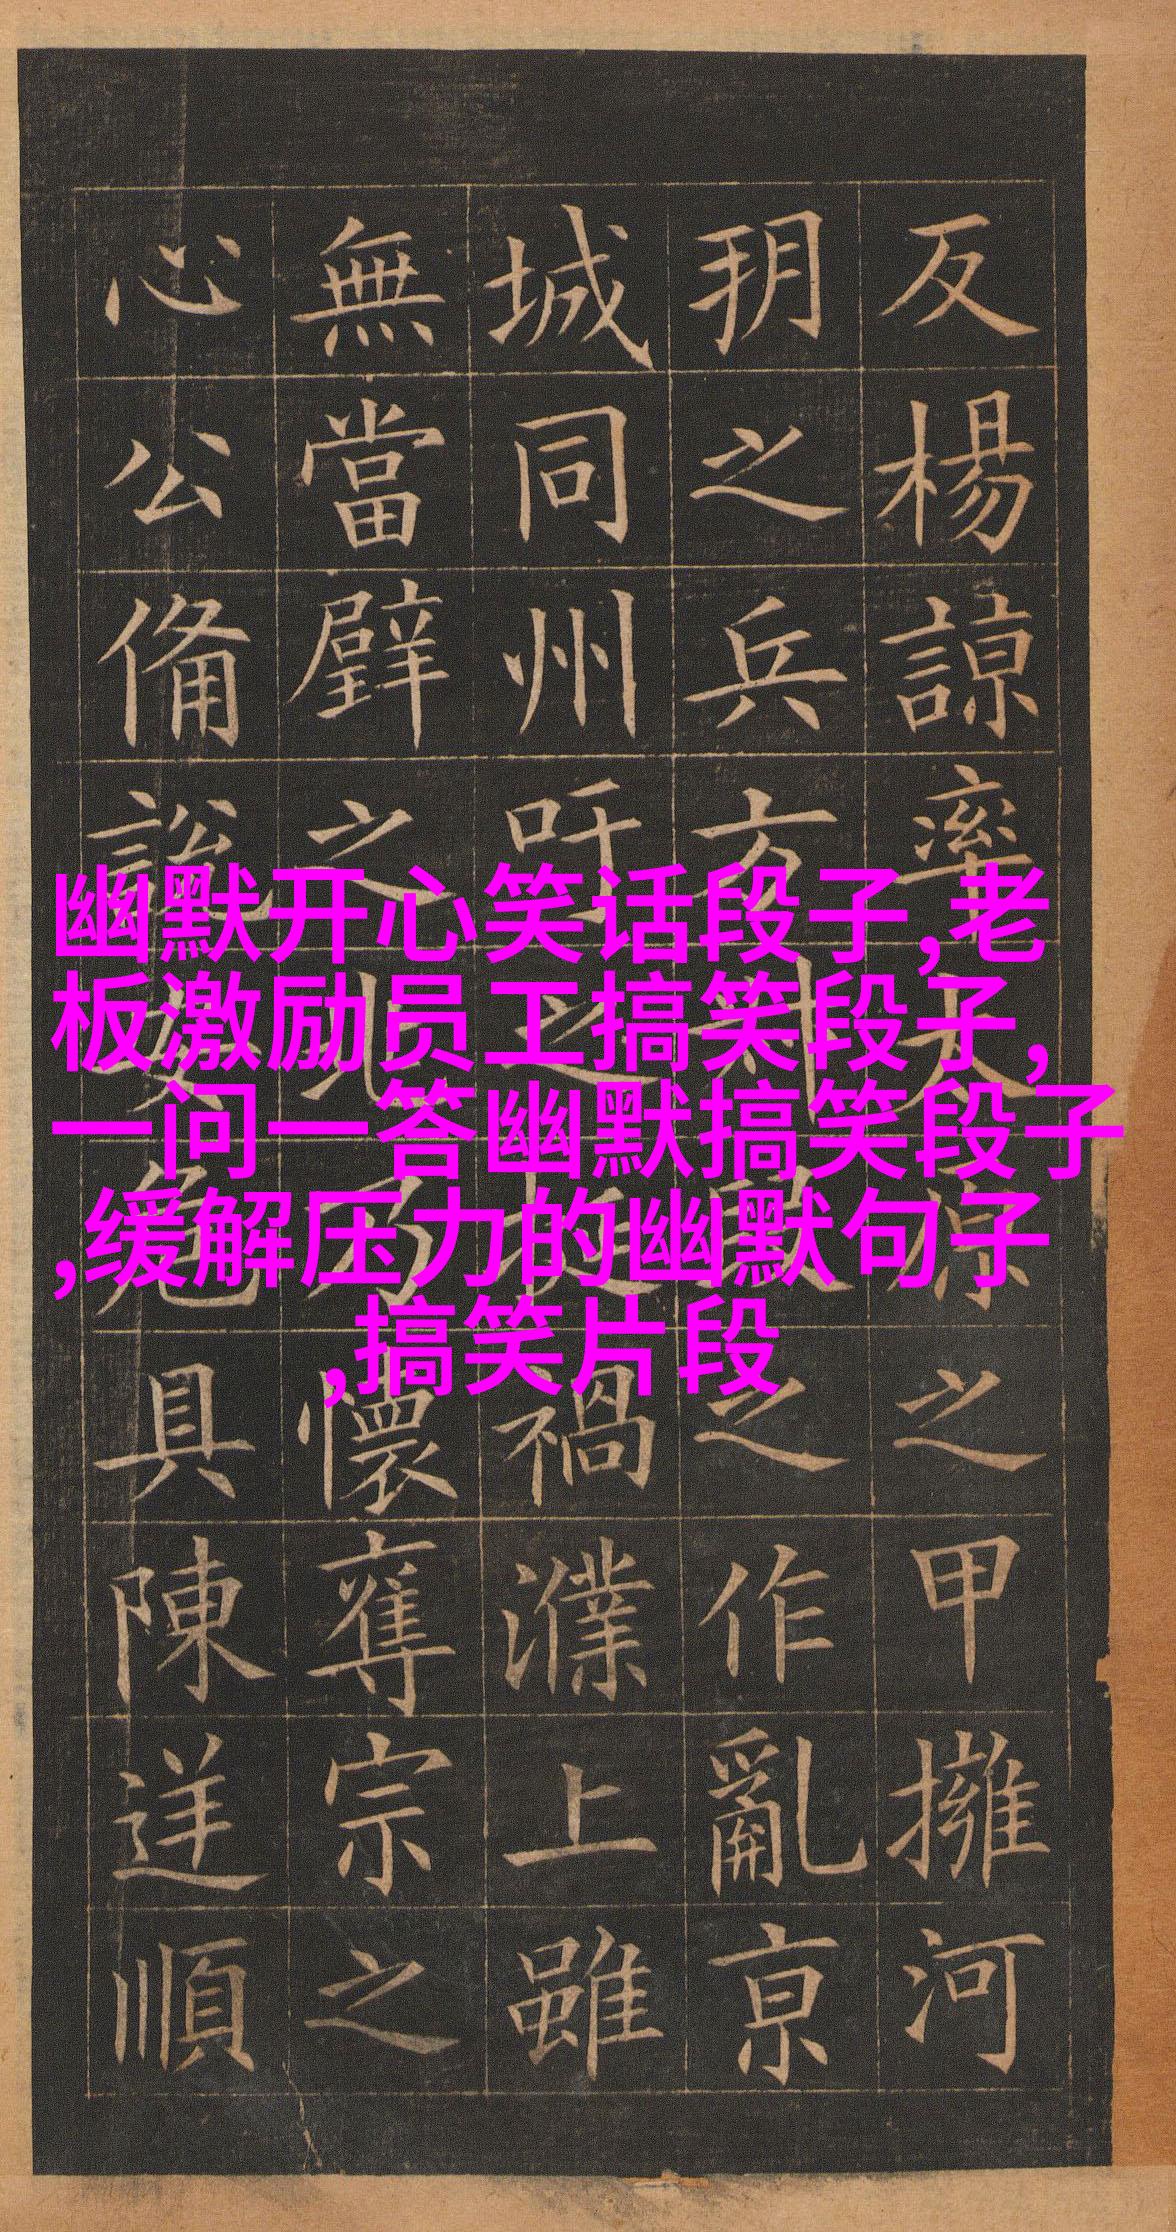 反楊諒率太原之甲擁河
朔之兵方段之作亂京
城同州吁之挻禍濮上雖
無當璧之兆乃懷奪宗之
心公備說安危具陳逆順
幽默开心笑话段子,老
板激励员工搞笑段子,
一问一答幽默搞笑段子
,缓解压力的幽默句子
,搞笑片段